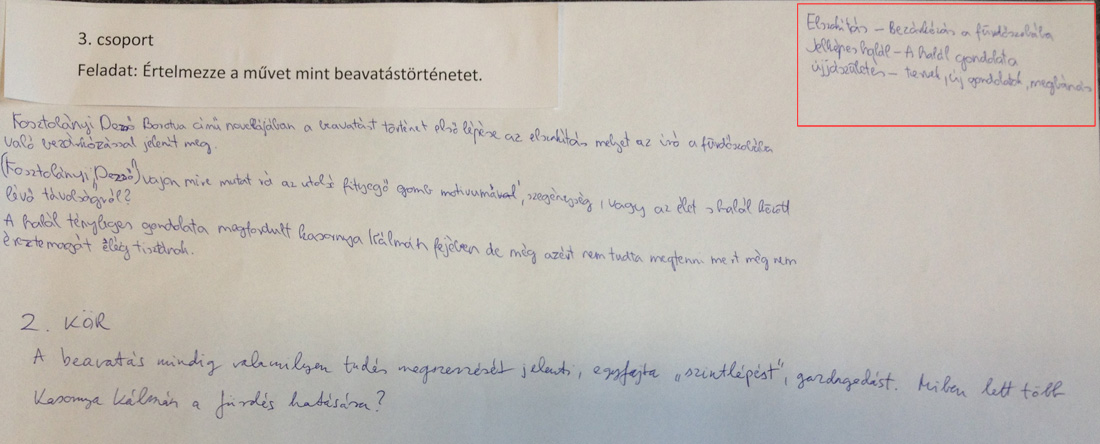 3. csoport
Feladat: Értelmezze a művet mint beavatástörténetet.
Elszakítás – Bezárkózás a fürdőszobába
Jelképes halál – A halál gondolata
újjászületés – tervek, új gondolatok, megbánás
Kosztolányi Dezső Borotva című novellájában a beavatást történet első lépése az elszakítás melyet az író a fürdőszobába
való bezárkózással jelenít meg.
(Kosztolányi Dezső) vajon mire mutat rá az utolsó fityegő gomb motívumával, szegénység, vagy az élet s halál között
lévő távolságról?
A halál tényleges gondolata megfordult Kasornya Kálmán fejében de még azért nem tudta megtenni mert még nem
érezte magát elég tisztának.
2. KÖR
A beavatás mindig valamilyen tudás megszerzését jelenti, egyfajta „szintlépést”, gazdagodást. Miben lett több
Kasornya Kálmán a fürdés hatására?